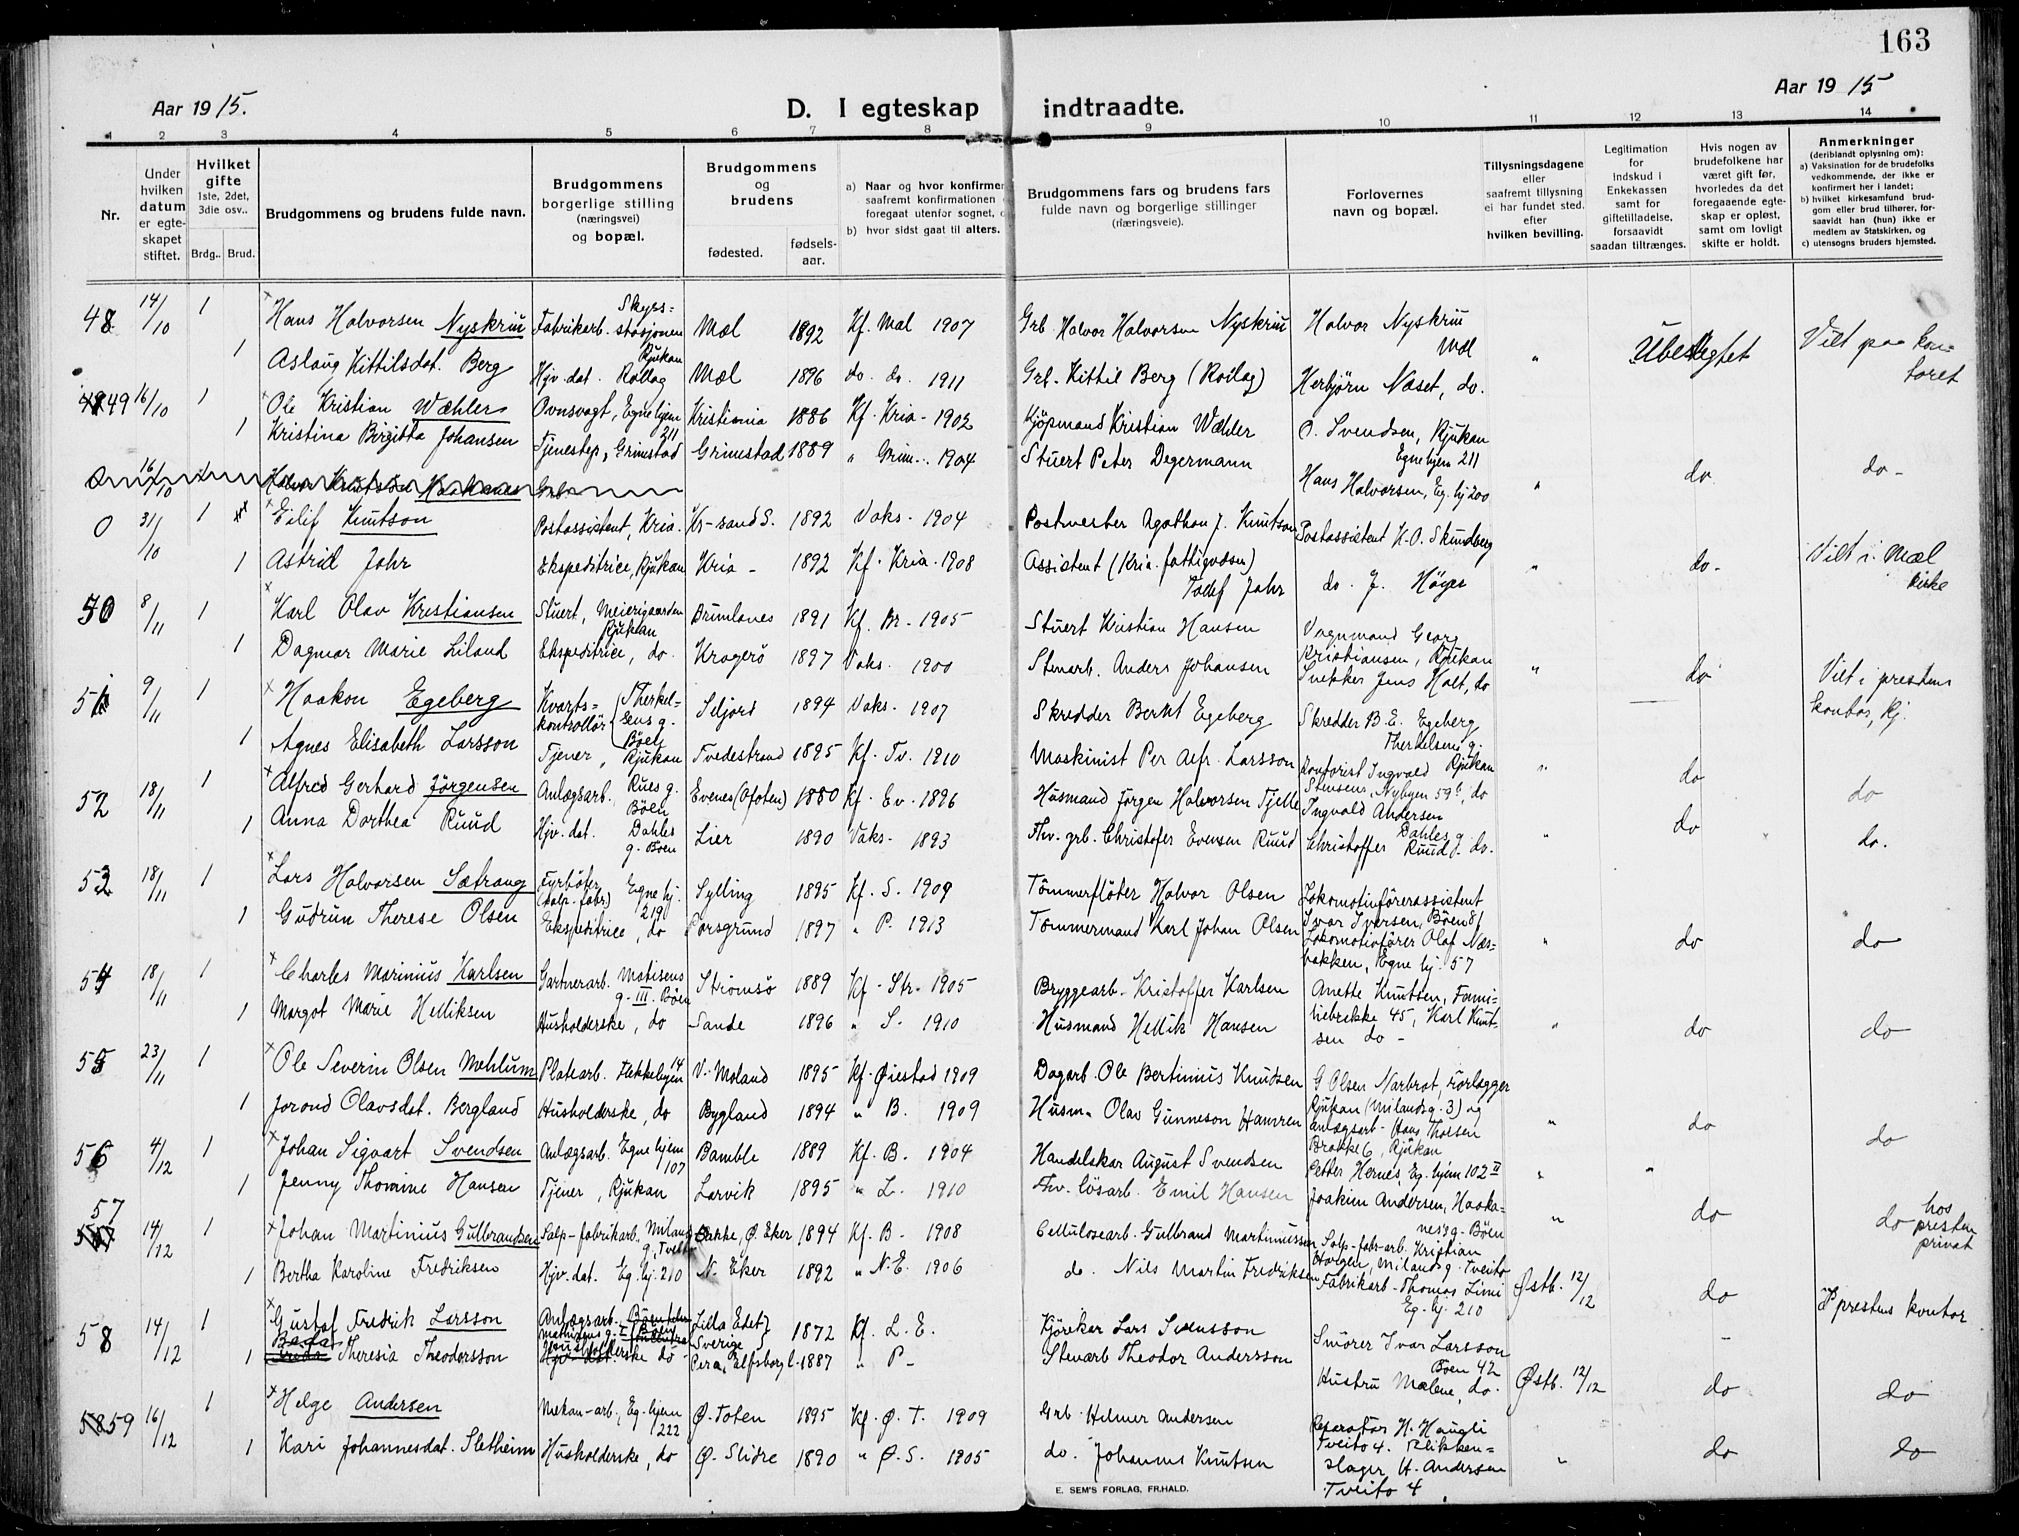 163
Aar 1915.
D. I egteskap indtraadte.
Aar 1915
1 2 3 4 5 6 7 8 9 10 11 12 13 14
Nr.
Under hvilken datum er egteskapet stiftet.
Hvilket gifte 1ste, 2det, 3die osv..
Brdg.. Brud.
Brudgommens og brudens fulde navn.
Brudgommens borgerlige stilling (næringsvei) og bopæl.
Brudgommens og brudens
fødested. fødsels-aar.
a) Naar og hvor konfirmer saafremt konfirmationen foregaat utenfor sognet,
b) hvor sidst gaat til alters.
Brudgommens fars og brudens fars fulde navn og borgerlige stillinger (næringsveie).
Forlovernes navn og bopæl.
Tillysningsdagene eller saafremt tillysning ei har fundet sted, efter hvilken bevilling.
Legitimation for Indskud i Enkekassen samt for giftetilladelse, forsaavidt saadan tiltrænges.
Hvis nogen av brudefolkene har været gift før, hvorledes da det foregaaende egteskap er opløst, samt om lovligt skifte er holdt.
Anmerkninger (deriblandt oplysning om): a) Vaksination for de brudefolks vedkommende, der ikke er konfirmert her i landet; b) hvilket kirkesamfund brudgom eller brud tilhører, forsaavidt han (hun) ikke er medlem av Statskirken, og c) utensogns bruders hjemsted.
48 14/10 1 Hans Halvorsen Nyskriu Fabrikarb. Skyss=stasjonen Rjukan Mæl 1892 Kf. Mæl 1907 Grb. Halvor Halvorsen Nyskriu Halvor Nyskriu Mæl
1 Aslaug Kittilsdat. Berg Hjv. dat. Rollag Mæl 1896 do. do. 1911 Grb. Kittil Berg (Rollag) Herbjörn Næset, do. " Ubeslegtet Viet paa kontoret
49 16/10 1 Ole Kristian Wæhler Ovnsvagt, Egne hjem 211 Kristiania 1886 Kf. Kria. 1902 Kjöpmand Kristian Wæhler O. Svendsen, Rjukan Egne hjem 211
1 Kristina Birgitta Johansen Tjenestep, Grimstad Grimestad 1889 " Grim. 1904 Stuert Peter Degermann Hans Halvorsen, Eg. hj 200 " do do -
16/10 1 Halvor Knutson Haakanes Grb.
0 31/10 1 Eilif Knutson Postassistent, Kria. Kr-sand S. 1892 Vaks. 1904 Postmester Agathon J. Knutson Postassistent K. O. Skundberg
1 Astrid Jahr Ekspeditrice, Rjukan Kria - 1892 Kf. Kria. 1908 Assistent (Kria. fattigvæsen) Todef Jahr do. J. Höyer " do- Viet i Mæl kirke
50 8/11 1 Karl Olav Kristiansen Stuert, Meierigaarden Rjukan Brunlanes 1891 Kf. Br. 1905 Stuert Kristian Hansen Vognmand Georg Kristiansen, Rjukan
1 Dagmar Marie Liland Ekspeditrice, do. Kragerö 1897 Vaks. 1900 Stenarb. Anders Johansen Snekker Jens Holt, do " do Viet i prestens kontor, Rj.
51 9/11 1 Haakon Egeberg Kvarts=kontrollör Therkelsens g. Böen Seljord 1894 Vaks. 1907 Skredder Bernt Egeberg Skredder B. E. Egeberg Therkelsens g.
1 Agnes Elisabeth Larsson Tjener, Rjukan Tvedestrand 1895 Kf. Tv. 1910 Maskinist Per Alfr. Larsson Kontorist Ingvald Stensens, Rjukan Nybyen 59b, do " do do
52 18/11 1 Alfred Gerhard Jörgensen Anlægsarb. Rues g. Böen Evenes (Ofoten) 1880 Kf. Ev. 1896 Husmand Jörgen Halvorsen Tjelle Ingvald Andersen Dahles g.
1 Anna Dorthea Ruud Hjv. dat. Dahles g. Böen Lier 1890 Vaks. 1893 Fhv. grb. Christofer Evensen Ruud Christoffer Ruud, do. " do do.
53 18/11 1 Lars Halvorsen Sætrang Fyrböter (salp. fabr.) Egne hj. 219 Sylling 1895 Kf. S. 1909 Tömmerflöter Halvor Olsen Lokomotivförerassistent Ivar Iversen, Böen 81
1 Gudrun Therese Olsen Ekspeditrice, do Porsgrund 1897 " P. 1913 Tömmermand Karl Johan Olsen Lokomotivförer Olaf Næsbakken, Egne hj. 57 " do do
54 18/11 1 Charles Marinius Karlsen Gartnerarb. Matisens g. III. Böen Strömsö 1889 Kf. Str. 1905 Bryggearb. Kristoffer Karlsen Anette Knutsen, Familiebrakke 45,
1 Margot Marie Helliksen Husholderske, do Sande 1896 " S. 1910 Husmand Hellik Hansen Karl Knutsen do - " do do
55 23/11 1 Ole Severin Olsen Mæhlum Platearb. Flekkebyen 14 V. Moland 1895 Kf. Öiestad 1909 Dagarb. Ole Bertinius Knudsen G Olsen Narbrot, Forlægger Rjukan (Milands g. 3) og
1 Jorond Olavsdat. Bergland Husholderske, do Bygland 1894 " B. 1909 Husm. Olav Gunneson Hamren anlægsarb. Hans Thorsen Brakke 6, Rjukan " do do
56 4/12 1 Johan Sigvart Svendsen Anlægsarb. Egne hjem 107 Bamble 1889 Kf. B. 1904 Handelskar August Svendsen Petter Hernes, Eg. hjem 102 II "
1 Jenny Thomine Hansen Tjener, Rjukan Larvik 1895 " L. 1910 Fhv. lösarb. Emil Hansen Joakim Andersen, Haakanes g. Böen " do do hos presten privat
57 14/12 1 Johan Martinius Gulbrandsen Salp-fabrikarb. Milands g, Tveito Bakke, Ø. Eker 1894 Kf. B. 1908 Cellulosearb. Gulbrand Martinussen Salp-fabr-arb. Kristian Horgen, Milands g. Tveito
1 Bertha Karoline Fredriksen Hjv. dat. Eg. hj. 210 N. Eker 1892 " N. E. 1906 do. Nils Martin Fredriksen Fabrikarb. Thomas Limi Eg. hj. 210 Østb. 12/12 do P prestens kontor
58 14/12 1 Gustaf Fredrik Larsson Anlægsarb. Lilla Edet Sverige 1872 Kf. L. E. Kjörekar Lars Svensson Smörer Ivar Larsson Böen 42 -
1 Beda Theresia Theodorsson Husholderske do Elfsborg l. 1887 " P - Stenarb Theodor Andersson Hustru Malene, do. Østb. 12/12 do do
59 16/12 1 Helge Andersen Mekan-arb, Eg. hjem 222 Ø. Toten 1895 Kf. Ø. T. 1909 Grb. Helmer Andersen Reparatör H. Haugli Tveito 4.
1 Kari Johannesdat. Sletheim Husholderske, do Ø. Slidre 1890 " Ø. S. 1905 do. Johannes Knutsen Blikkenslager H. Andersen Tveito 4 " do do
E. SEM'S FORLAG, FR.HALD.